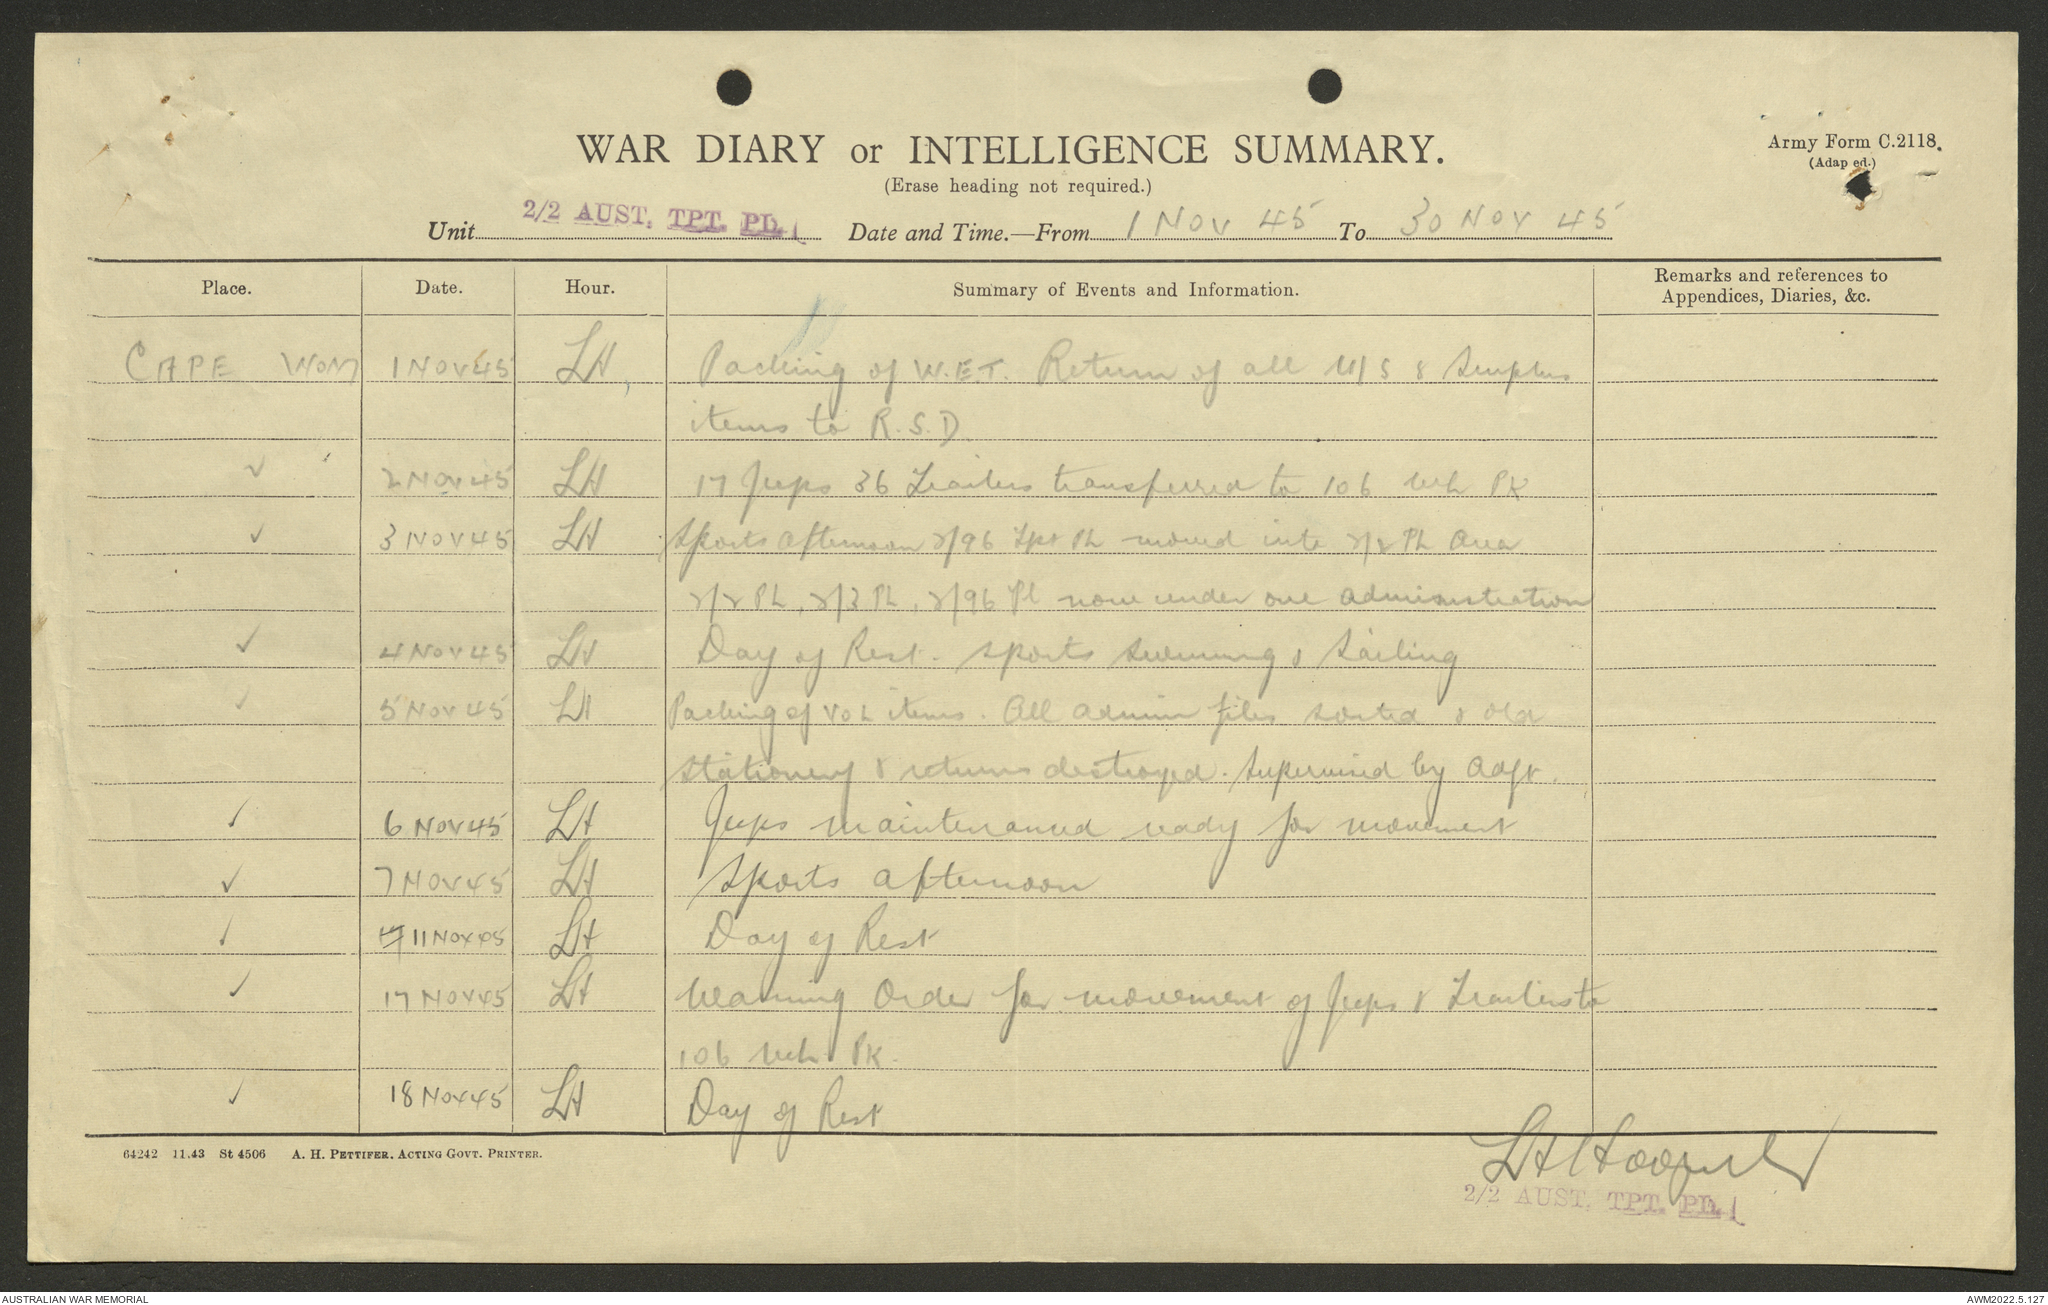 WAR DIARY or INTELLIGENCE SUMMARY.
Army Form C.2118.
(Adapted.)
(Erase heading not required.)
Unit 2/2 AUST. TPT. PL. Date and Time.—From 1 NOV 45 To 30 NOV 45
Place. Date. Hour. Summary of Events and Information. Remarks and references to
Appendices, Diaries, &c.
CAPE WOM 1 NOV 45 LH, Packing of W.E.T. Return of all U/S & Surplus
items to R.S.D.
✓ 2 NOV 45 LH 17 Jeeps 36 Trailers transferred to 106 Veh PK
✓ 3 NOV 45 LH Sports afternoon 2/96 Tpt Pl moved into 2/2 Pl Area
2/2 Pl, 2/3 Pl, 2/96 Pl now under one administration
✓ 4 NOV 45 LH Day of Rest. Sports Swimming & Sailing
✓ 5 NOV 45 LH Packing of items. All admin files sorted & old
stationery & returns destroyed. Supervised by Adjt.
✓ 6 NOV 45 LH Jeeps maintenanced ready for movement
✓ 7 NOV 45 LH Sports afternoon
✓ 11 NOV 45 LH Day of Rest
✓ 17 NOV 45 LH Warning Order for movement of Jeeps & Trailers to
106 Veh PK.
✓ 18 NOV 45 LH Day of Rest
64242 11.43 St 4506 A. H. PETTIFER, ACTING GOVT. PRINTER.
2/2 AUST. TPT. PL.
AUSTRALIAN WAR MEMORIAL
AWM2022.5.127